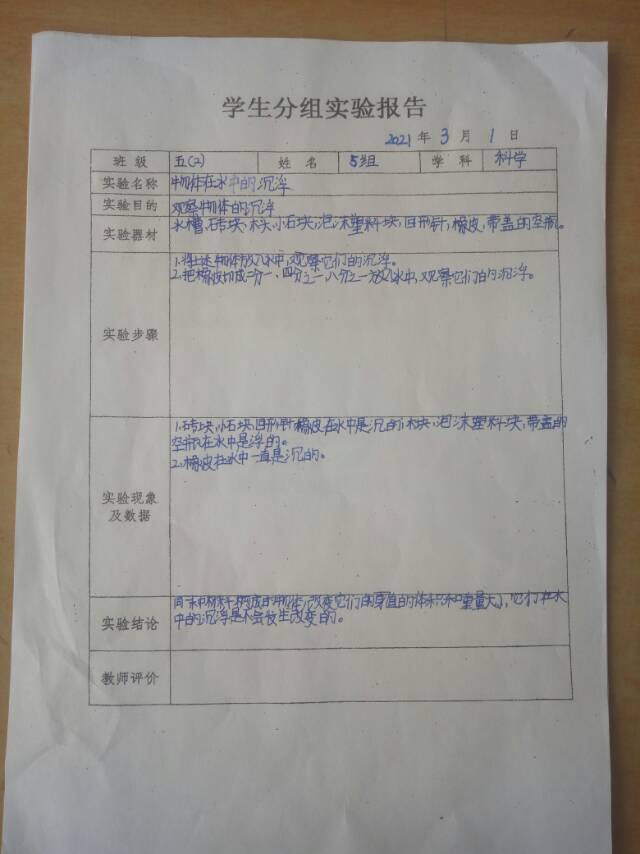 学生分组实验报告
2021 年 3 月 1 日
班 级 五(2) 姓 名 5组 学 科 科学
实验名称 物体在水中的沉浮
实验目的 观察物体的沉浮
实验器材 水槽,砖块,木头,小石块,泡沫塑料块,回形针,橡皮,带盖的空瓶。
实验步骤
1.将上述物体放入水中,观察它们的沉浮。
2.把橡皮切成二分一、四分之一、八分之一放入水中,观察它们的沉浮。
实验现象
及数据
1.砖块,小石块,回形针,橡皮在水中是沉的,木块,泡沫塑料块,带盖的
空瓶在水中是浮的。
2.橡皮在水中一直是沉的。
实验结论
同一种材料构成的物体,改变它们的 的体积和重量大小,它们在水
中的沉浮是不会发生改变的。
教师评价